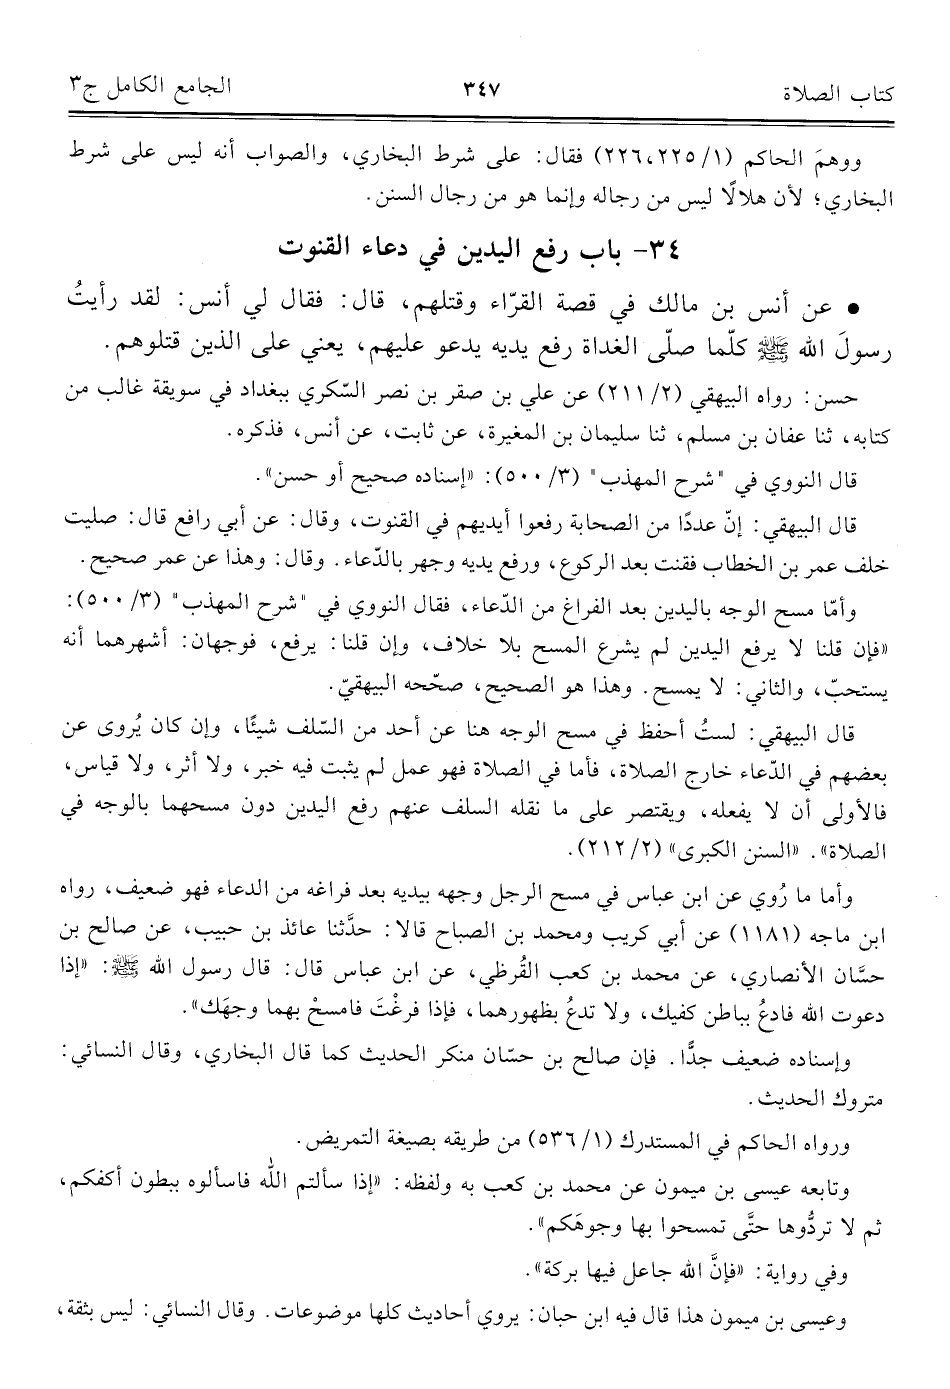 كتاب الصلاة ٣٤٧ الجامع الكامل ج٣
ووهمَ الحاكم (١/ ٢٢٥،٢٢٦) فقال: على شرط البخاري، والصواب أنه ليس على شرط
البخاري؛ لأن هلالًا ليس من رجاله وإنما هو من رجال السنن.
٣٤- باب رفع اليدين في دعاء القنوت
• عن أنس بن مالك في قصة القرّاء وقتلهم، قال: فقال لي أنس: لقد رأيتُ
رسولَ الله ﷺ كلّما صلّى الغداة رفع يديه يدعو عليهم، يعني على الذين قتلوهم.
حسن: رواه البيهقي (٢/ ٢١١) عن علي بن صقر بن نصر السّكري ببغداد في سويقة غالب من
كتابه، ثنا عفان بن مسلم، ثنا سليمان بن المغيرة، عن ثابت، عن أنس، فذكره.
قال النووي في "شرح المهذب" (٣/ ٥٠٠): «إسناده صحيح أو حسن».
قال البيهقي: إنّ عددًا من الصحابة رفعوا أيديهم في القنوت، وقال: عن أبي رافع قال: صليت
خلف عمر بن الخطاب فقنت بعد الركوع، ورفع يديه وجهر بالدّعاء. وقال: وهذا عن عمر صحيح.
وأمّا مسح الوجه باليدين بعد الفراغ من الدّعاء، فقال النووي في "شرح المهذب" (٣/ ٥٠٠):
«فإن قلنا لا يرفع اليدين لم يشرع المسح بلا خلاف، وإن قلنا: يرفع، فوجهان: أشهرهما أنه
يستحبّ، والثاني: لا يمسح. وهذا هو الصحيح، صحّحه البيهقيّ.
قال البيهقي: لستُ أحفظ في مسح الوجه هنا عن أحد من السّلف شيئًا، وإن كان يُروى عن
بعضهم في الدّعاء خارج الصلاة، فأما في الصلاة فهو عمل لم يثبت فيه خبر، ولا أثر، ولا قياس،
فالأولى أن لا يفعله، ويقتصر على ما نقله السلف عنهم رفع اليدين دون مسحهما بالوجه في
الصلاة». «السنن الكبرى» (٢/ ٢١٢).
وأما ما رُوي عن ابن عباس في مسح الرجل وجهه بيديه بعد فراغه من الدعاء فهو ضعيف، رواه
ابن ماجه (١١٨١) عن أبي كريب ومحمد بن الصباح قالا: حدَّثنا عائذ بن حبيب، عن صالح بن
حسَّان الأنصاري، عن محمد بن كعب القُرظي، عن ابن عباس قال: قال رسول الله ﷺ: «إذا
دعوت الله فادعُ بباطن كفيك، ولا تدعُ بظهورهما، فإذا فرغْتَ فامسحْ بهما وجهَك».
وإسناده ضعيف جدًّا. فإن صالح بن حسّان منكر الحديث كما قال البخاري، وقال النسائي:
متروك الحديث.
ورواه الحاكم في المستدرك (١/ ٥٣٦) من طريقه بصيغة التمريض.
وتابعه عيسى بن ميمون عن محمد بن كعب به ولفظه: «إذا سألتم الله فاسألوه ببطون أكفكم،
ثم لا تردُّوها حتَّى تمسحوا بها وجوهَكم».
وفي رواية: «فإنَّ الله جاعل فيها بركة».
وعيسى بن ميمون هذا قال فيه ابن حبان: يروي أحاديث كلها موضوعات. وقال النسائي: ليس بثقة،